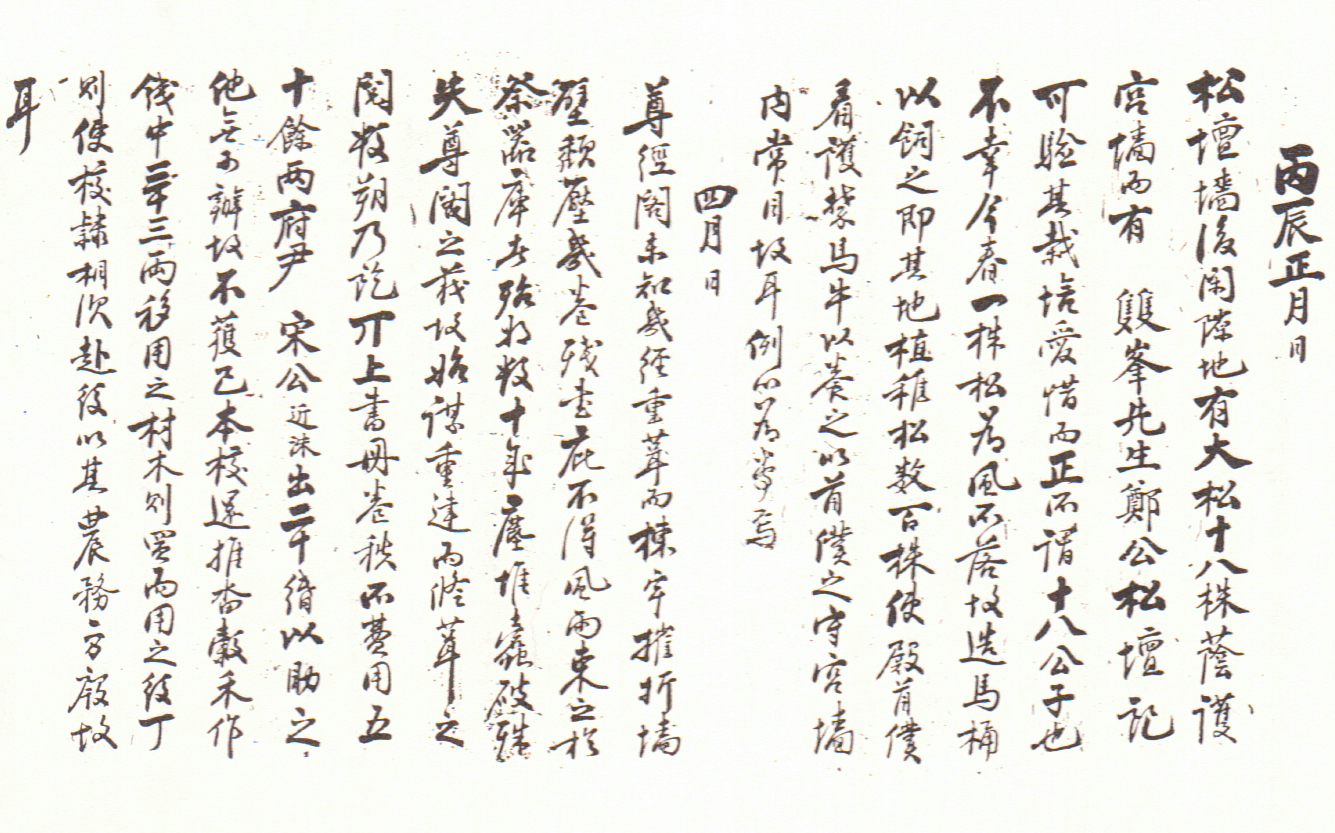 丙辰正月 日
松壇墻後閑隙地有大松十八株蔭護
宮墻而有 雙峯先生鄭公松壇記
可驗其栽培愛惜而正所謂十八公子也
不幸今春一株松爲風所落故造馬桶
以飼之卽其地植稚松數百株使殿首僕
看護榮馬牛以養之以首僕之守宮墻
內常目故耳例以爲常焉
四月 日
尊經閣未知幾經重葺而棟宇摧折墻
壁頹壓幾卷殘書庇不得風雨束之於
祭器庫者殆於數十年塵堆蠹破殊
失尊閣之義故始謀重建而修葺之
閱數朔乃訖丌上書冊卷秩所費用五
十餘兩府尹 宋公近洙出二十緡以助之
他無可辦故不獲已本校還推畓穀禾作
錢中三十三兩移用之材木則買而用之役丁
則使校隸相次赴役以其農務方殷故
耳